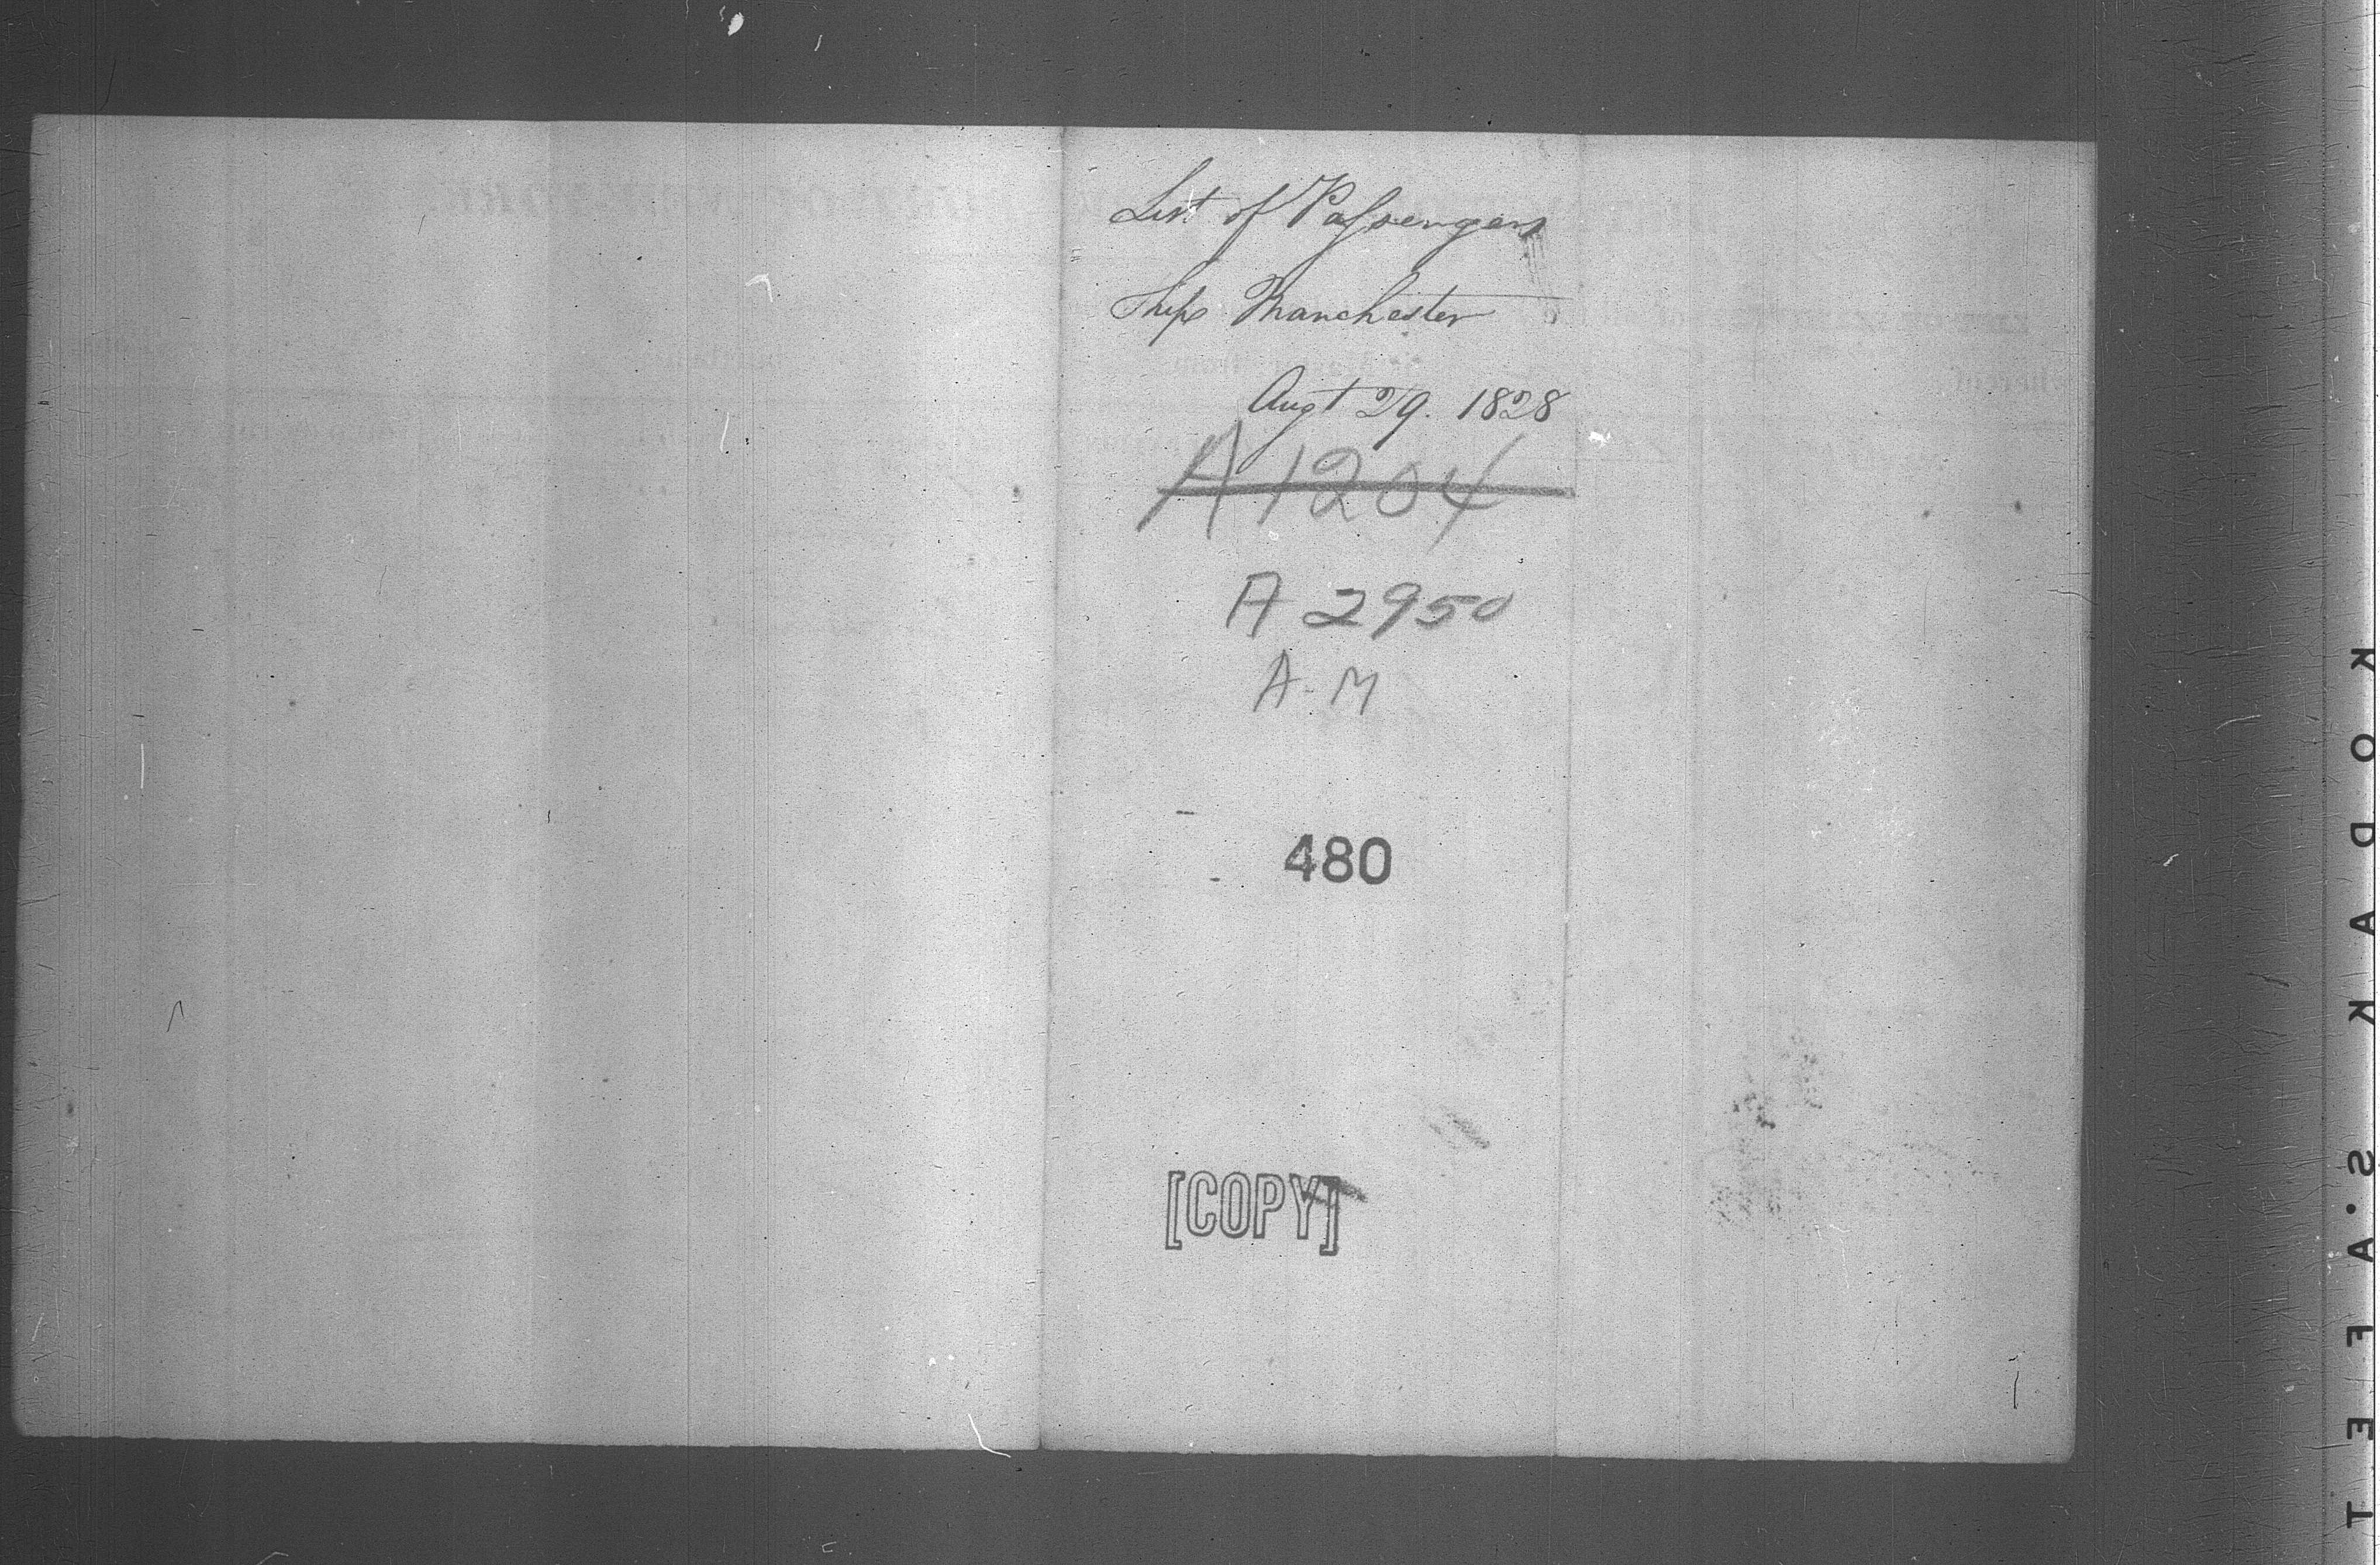 List of Passengers
Ship Manchester
Augt 29. 1828
A 1204
A 2950
A. M
480
[COPY]
KODAK S.AFETY